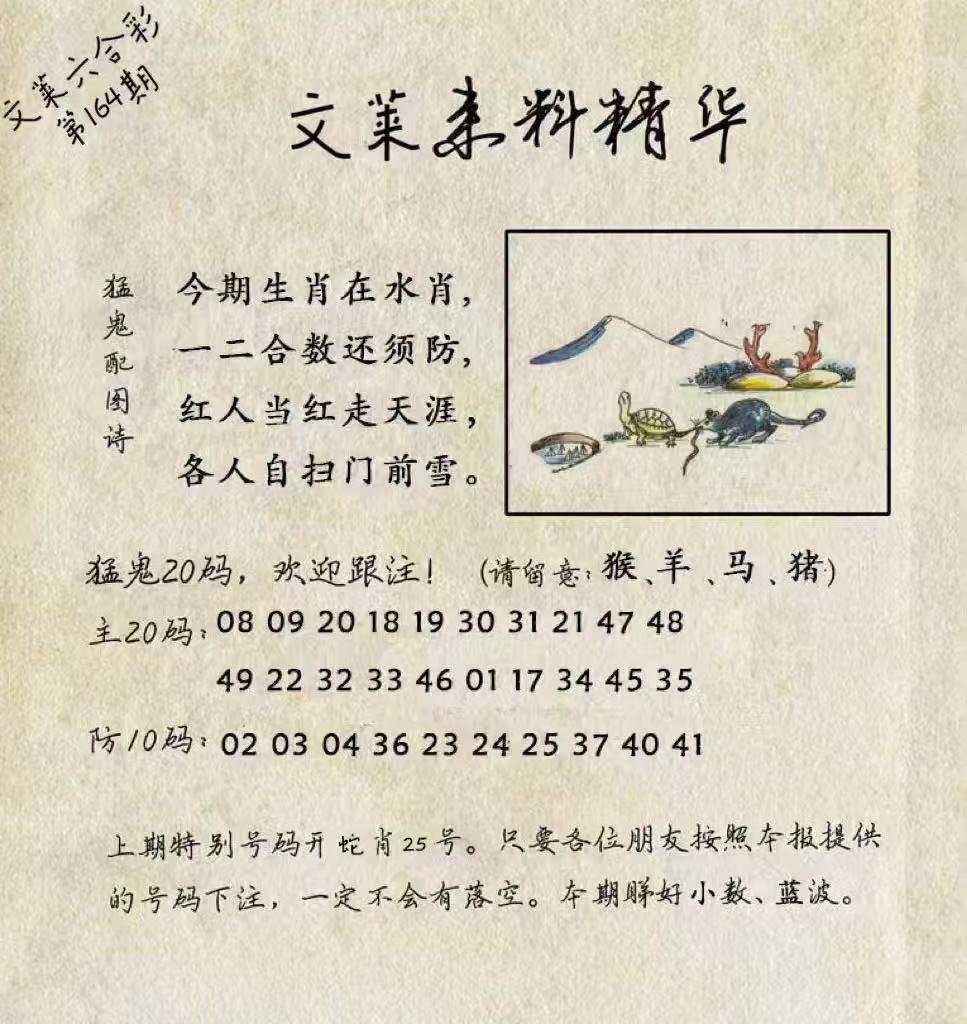 文莱六合彩
第164期
文莱来料精华
猛鬼配图诗
今期生肖在水肖，
一二合数还须防，
红人当红走天涯，
各人自扫门前雪。
猛鬼20码，欢迎跟注！（请留意：猴、羊、马、猪）
主20码：08 09 20 18 19 30 31 21 47 48
49 22 32 33 46 01 17 34 45 35
防10码：02 03 04 36 23 24 25 37 40 41
上期特别号码开蛇肖25号。只要各位朋友按照本报提供
的号码下注，一定不会有落空。本期睇好小数、蓝波。